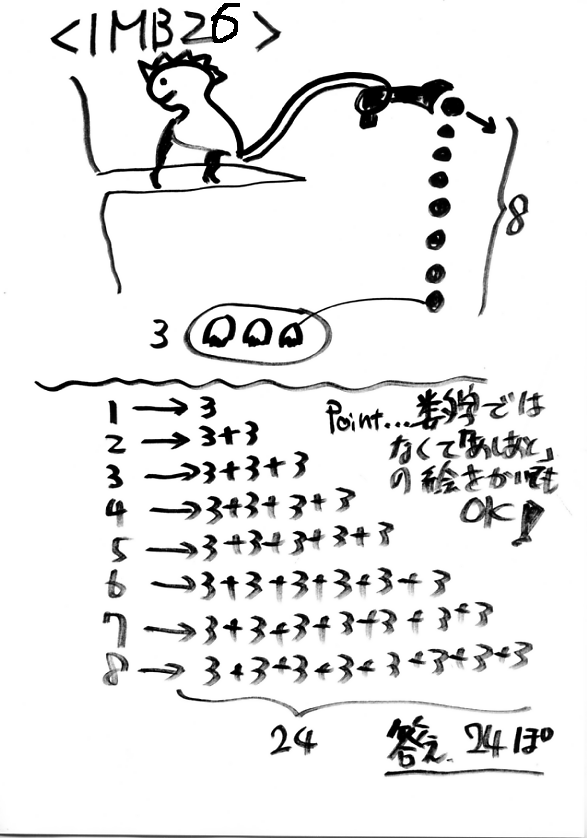 <IMB26>
8
3
1 → 3
2 → 3+3
3 → 3+3+3
4 → 3+3+3+3
5 → 3+3+3+3+3
6 → 3+3+3+3+3+3
7 → 3+3+3+3+3+3+3
8 → 3+3+3+3+3+3+3+3
Point...数学では
なくて「あしあと」
の絵をかいても
OK!
24
答え. 24ぽ